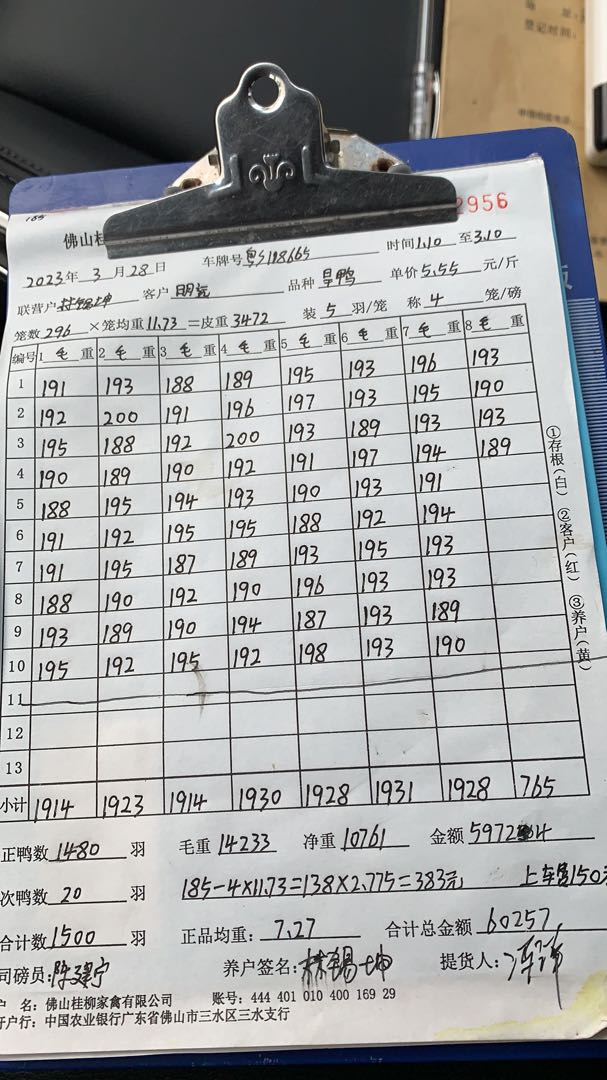 165
佛山桂
2956
2023年 3月28日 车牌号 粤S118665 时间1.10 至3.10
联营户 林锡坤 客户 明記 品种 旱鸭 单价5.55 元/斤
笼数 296 ×笼均重11.73=皮重3472 装 5 羽/笼 称 4 笼/磅
编号 1 毛 重 2 毛 重 3 毛 重 4 毛 重 5 毛 重 6 毛 重 7 毛 重 8 毛 重
1 191 193 188 189 195 193 196 193
2 192 200 191 196 197 193 195 190
3 195 188 192 200 193 189 193 193
4 190 189 190 192 191 197 194 189
5 188 195 194 193 190 193 191
6 191 192 195 195 188 192 194
7 191 195 187 189 193 195 193
8 188 190 192 190 196 193 193
9 193 189 190 194 187 193 189
10 195 192 195 192 198 193 190
11
12
13
小计 1914 1923 1914 1930 1928 1931 1928 765
①存根(白) ②客户(红) ③养户(黄)
正鸭数 1480 羽 毛重 14233 净重 10761 金额 59724
次鸭数 20 羽 185-4×11.73=138×2.775=383元 上车 150
合计数 1500 羽 正品均重: 7.27 合计总金额 60257
司磅员: 陈建宁 养户签名: 林锡坤 提货人:
户 名: 佛山桂柳家禽有限公司 账号: 444 401 010 400 169 29
开户行: 中国农业银行广东省佛山市三水区三水支行